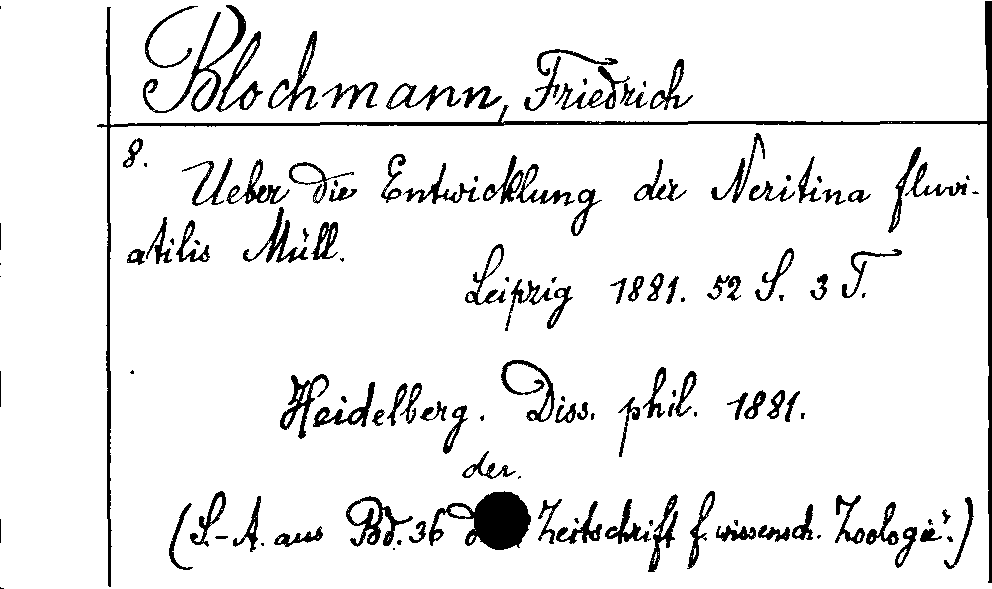 Blochmann, Friedrich
8.
Ueber die Entwicklung der Neritina fluvi-
atilis Müll.
Leipzig 1881. 52 S. 3 T.
Heidelberg. Diss. phil. 1881.
der.
(S.-A. aus Bd. 36 Zeitschrift f. wissensch. Zoologie".)